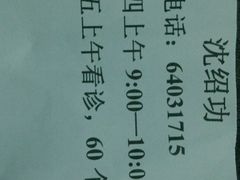 沈绍功
电话：64031715
四上午 9:00—10:0
五上午看诊，60 个